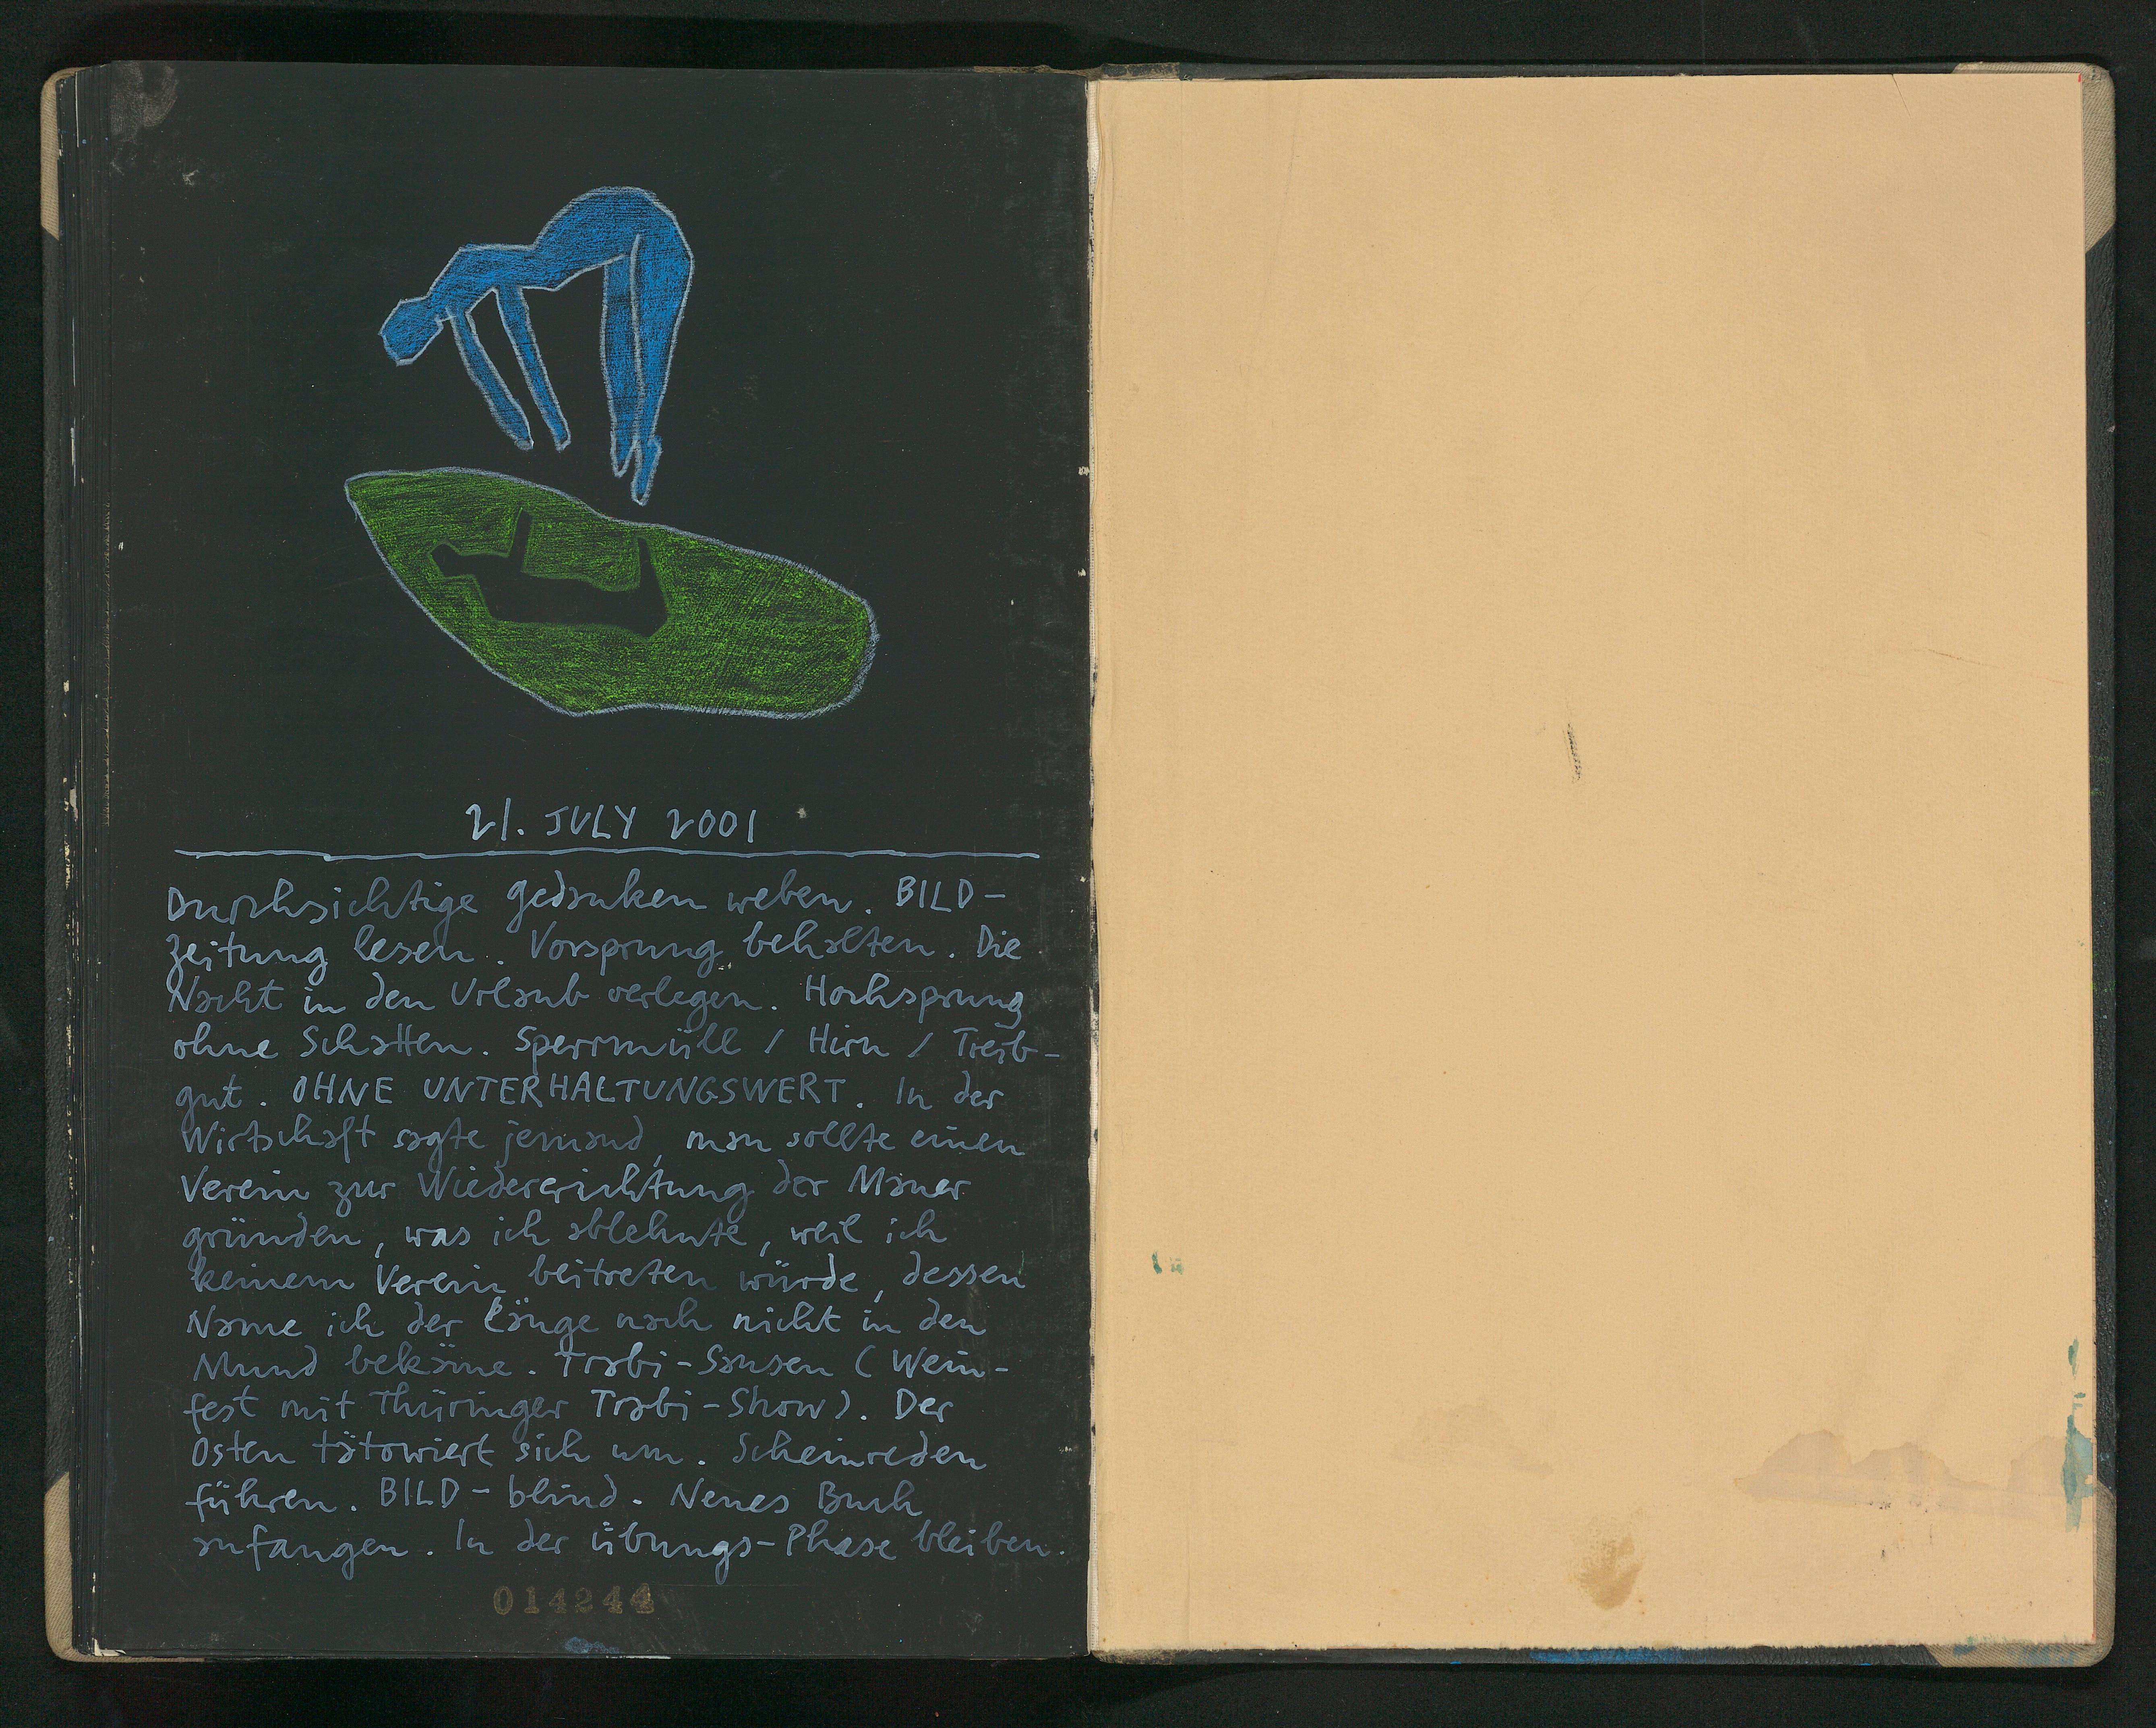 21. JULY 2001
Durchsichtige gedanken weben. BILD-
Zeitung lesen. Vorsprung behalten. Die
Nacht in den Urlaub verlegen. Hochsprung
ohne Schatten. Sperrmüll / Hirn / Treib-
gut. OHNE UNTERHALTUNGSWERT. In der
Wirtschaft sagte jemand, man sollte einen
Verein zur Wiedererichtung der Mauer
gründen, was ich ablehnte, weil ich
keinem Verein beitreten würde, dessen
Name ich der Länge nach nicht in den
Mund bekäme. Trabi-Sausen (Wein-
fest mit Thüringer Trabi-Show). Der
Osten tätowiert sich um. Scheinreden
führen. BILD-blind. Neues Buch
anfangen. In der übungs-Phase bleiben.
014244